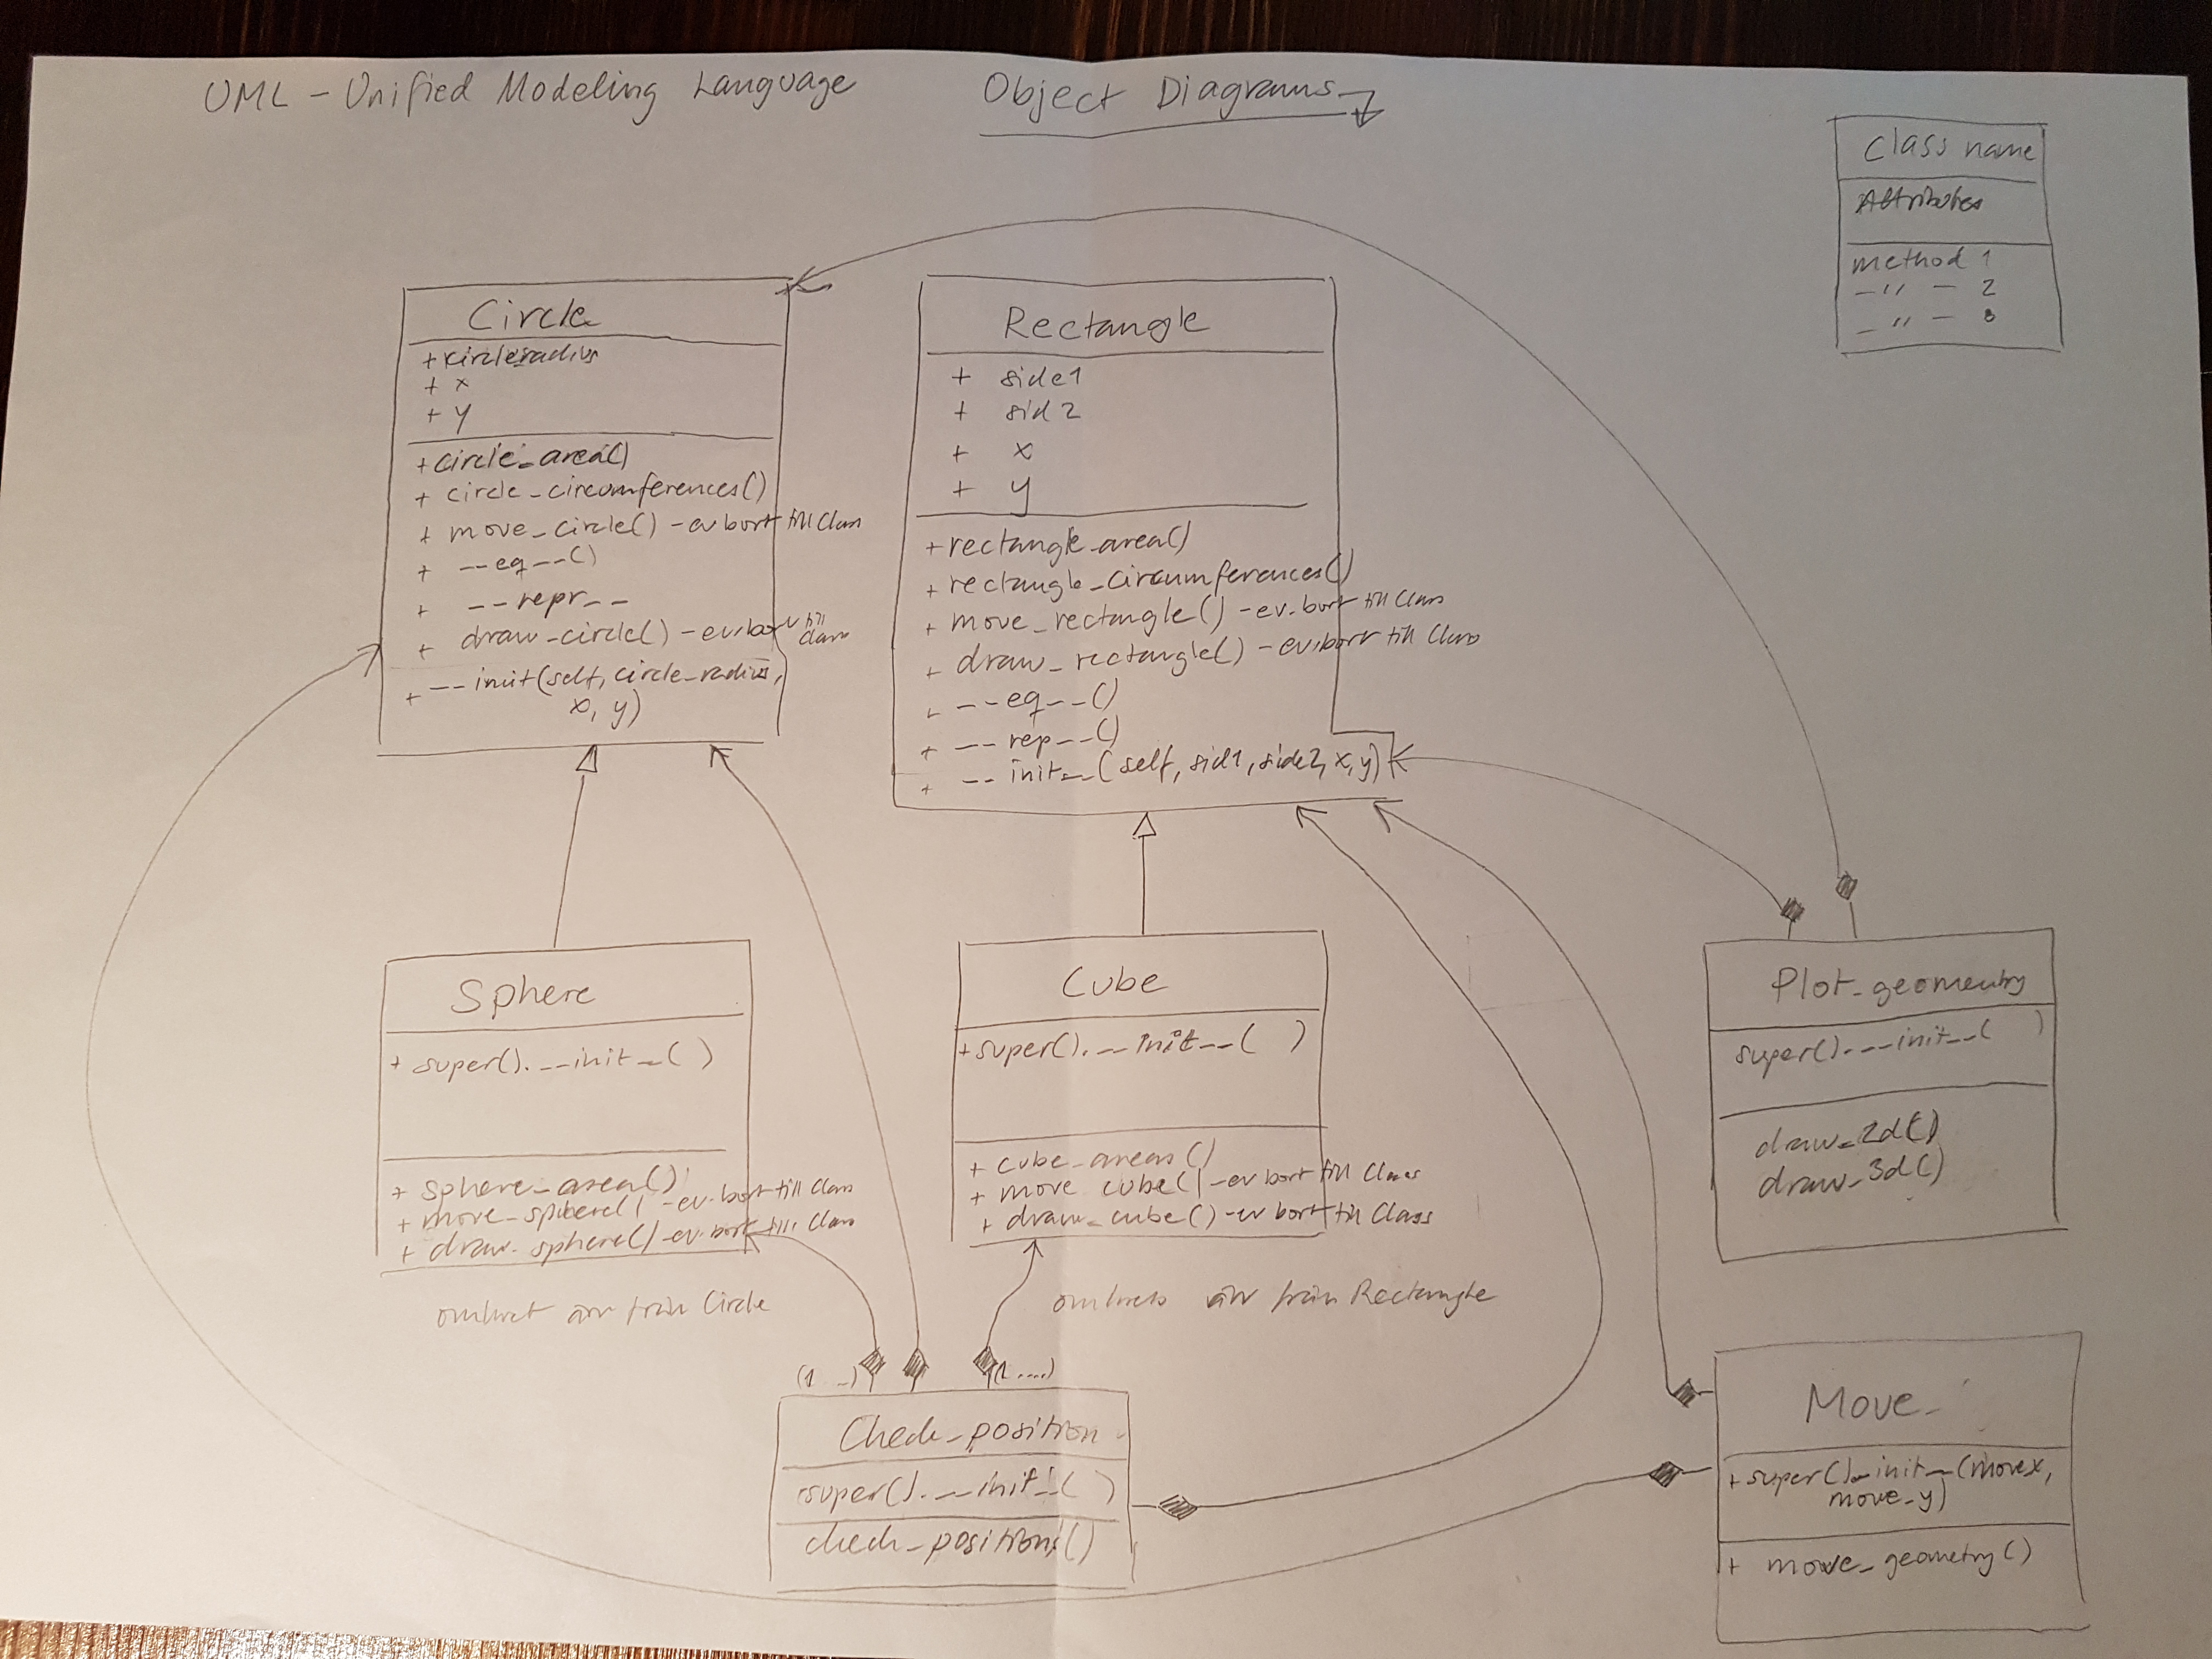 UML - Unified Modeling Language
Object Diagrams
Class name
Attributes
method 1
-"- 2
-"- 3
Circle
+circleradius
+ x
+ y
+circle_area()
+ circle_circumferences()
+ move_circle() - ev bort till Class
+ __eq__()
+ __repr__
+ draw_circle() - ev. bort till
Class
+ __init(self, circle_radius,
x, y)
Rectangle
+ side1
+ sid2
+ x
+ y
+rectangle_area()
+rectangle_circumferences()
+ move_rectangle() - ev. bort till Class
+ draw_rectangle() - ev. bort till Class
+ __eq__()
+ __rep__()
+ __init__(self, sid1, side2, x, y)
Sphere
+ super().__init__( )
+ sphere_area()
+ move_sphere() - ev. bort till Class
+ draw_sphere() - ev. bort till Class
omkret ärv från Circle
Cube
+super().__init__( )
+ cube_areas()
+ move cube() - ev bort till Class
+ draw_cube() - ev bort till Class
omkrets ärv från Rectangle
Plot_geomentry
super().__init__( )
draw_2d()
draw_3d()
(1 ..)
(1 ....)
Check_position
super().__init__( )
check_positions()
Move_
+super()._init__(movex,
move_y)
+ move_geometry()